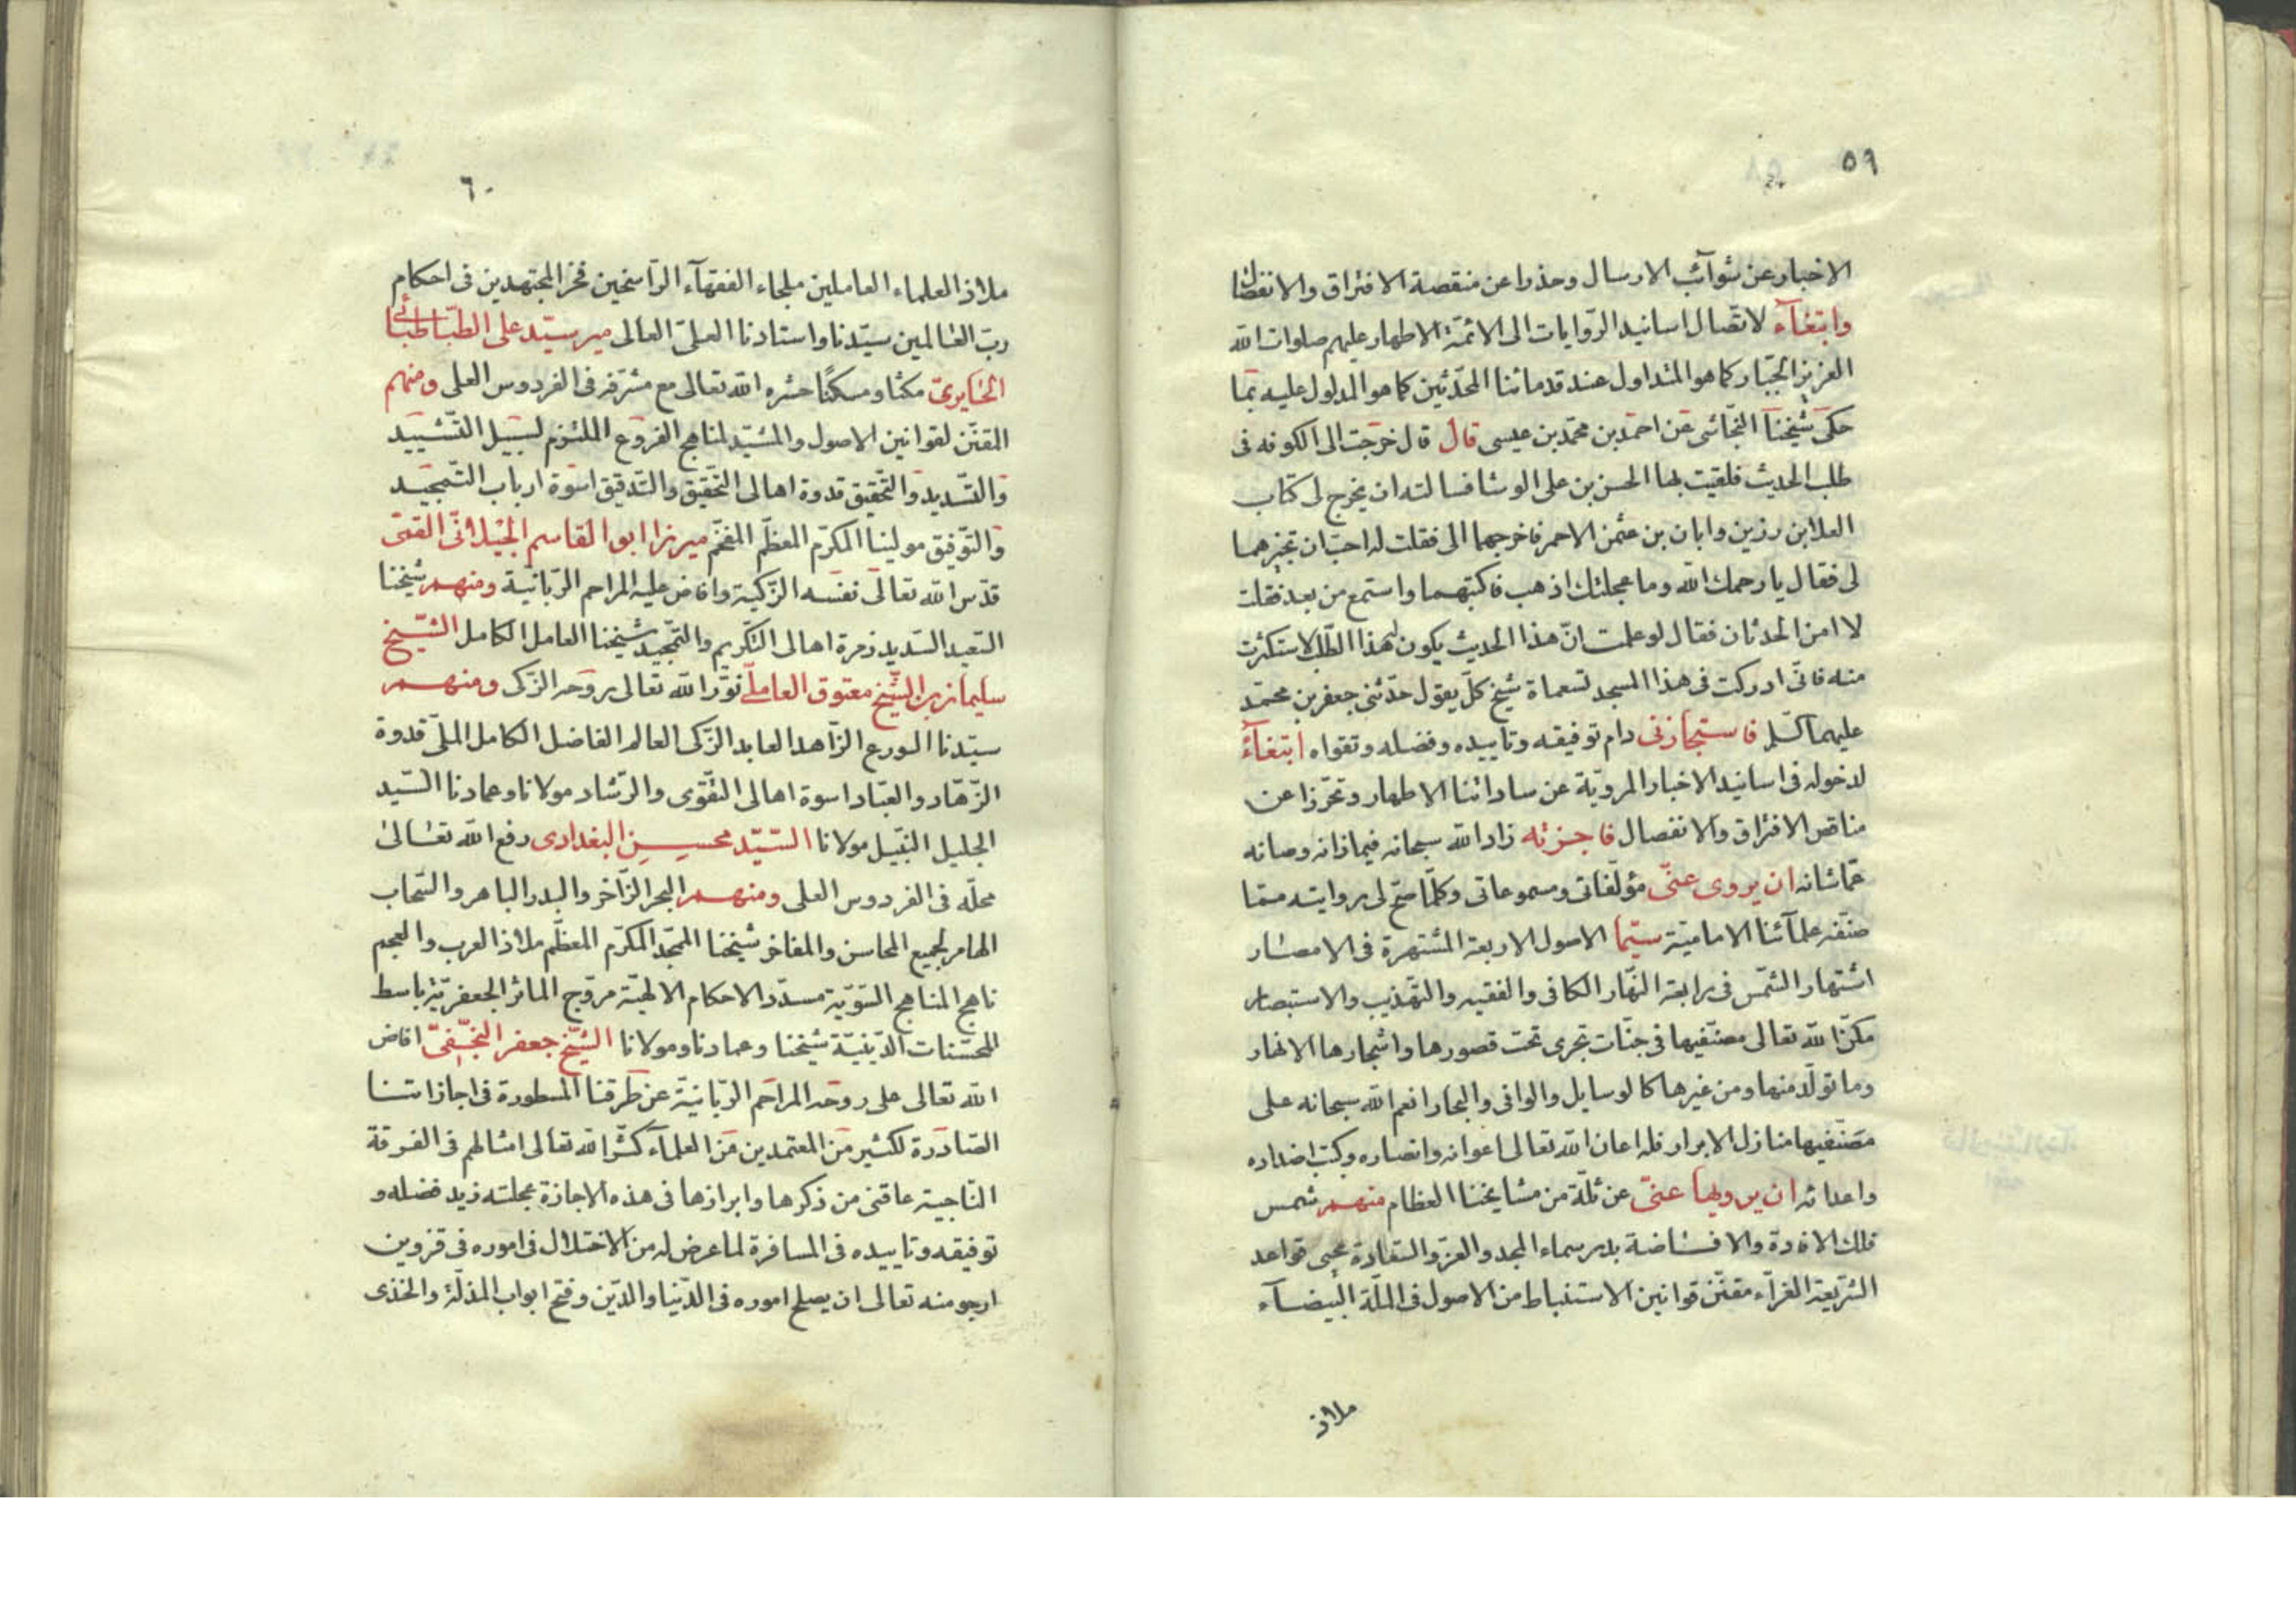 ٥٩
الاخبار عن شوآئب الارسال وحذرا عن منقصة الافتراق والانفصال
وابتغآء لاتّصال اسانيد الرّوايات الى الائمّة الاطهار عليهم صلوات الله
العزيز الجبّار كما هو المتداول عند قدمائنا المحدّثين كما هو المدلول عليه بما
حكى شيخنا النجّاشى عن احمد بن محمّد بن عيسى قال قال خرجت الى الكوفه فى
طلب الحديث فلقيت بها الحسن بن على الوشا فسالته ان يخرج لى كتاب
العلا بن رزين وابان بن عثمن الاحمر فاخرجهما الى فقلت له احبّ ان تجيزهما
لى فقال يا رحمك الله وما عجلتك اذهب فاكتبهما واستمع من بعد فقلت
لا امن الحدثان فقال لو علمت انّ هذا الحديث يكون لهذا الطّلب لاستكثرت
منه فانّى ادركت فى هذا المسجد تسعماة شيخ كلّ يقول حدّثنى جعفر بن محمّد
عليهما السّلم فاستجازنى دام توفيقه وتاييده وفضله وتقواه ابتغآء
لدخوله فى اسانيد الاخبار المرويّة عن ساداتنا الاطهار وتحرّزا عن
مناقص الافتراق والانفصال فاجزته زاد الله سبحانه فيما زانه وصانه
عمّا شانه ان يروى عنّى مؤلّفاتى ومسموعاتى وكلّما صحّ لى روايته ممّا
صنّفه علمآئنا الاماميّة سيّما الاصول الاربعة المشتهرة فى الامصار
اشتهار الشّمس فى رابعة النّهار الكافى والفقيه والتّهذيب والاستبصار
مكّن الله تعالى مصنّفيها فى جنّات تجرى تحت قصورها واشجارها الانهار
وما تولّد منها ومن غيرها كالوسايل والوافى والبحار انعم الله سبحانه على
مصنّفيها منازل الابرار فله اعان الله تعالى اعوانه وانصاره وكبت اضداده
واعدائه ان يرويها عنّى عن ثلّة من مشايخنا العظام منهم شمس
فلك الافادة والافاضة بدر سماء المجد والعزّ والسّعادة محيى قواعد
الشّريعة الغرّاء مقنّن قوانين الاستنباط من الاصول فى الملّة البيضآء
ملاذ
٦٠
ملاذ العلماء العاملين ملجاء الفقهآء الرّاسخين فخر المجتهدين فى احكام
ربّ العالمين سيّدنا واستادنا العلىّ العالى مير سيّد على الطبّاطبائى
الحايرىّ مكثا ومسكنًا حشره الله تعالى مع مشرّفه فى الفردوس العلى ومنهم
المقنّن لقوانين الاصول والمشيّد لمناهج الفروع الملتزم لسبيل التّشييد
والتّسديد والتّحقيق قدوة اهالى التّحقيق والتّدقيق اسوة ارباب التّمجيد
والتّوفيق مولينا المكرّم المعظّم المفخّم ميرزا ابو القاسم الجيلانّى القمّى
قدّس الله تعالى نفسه الزّكيّة وافاض عليه المراحم الرّبانيّة ومنهم شيخنا
السّعيد السّديد زمرة اهالى التّكريم والتّمجيد شيخنا العامل الكامل الشّيخ
سليمان بن الشّيخ معتوق العاملّى نوّر الله تعالى روحه الزّكى ومنهم
سيّدنا الورع الزّاهد العابد الزّكى العالم الفاضل الكامل الملّى قدوة
الزّهّاد والعبّاد اسوة اهالى التّقوى والرّشاد مولانا وعمادنا السّيد
الجليل النّبيل مولانا السّيّد محسن البغدادى رفع الله تعالى
محلّه فى الفردوس العلى ومنهم البحر الزّاخر والبدر الباهر والسّحاب
الهامر لجميع المحاسن والمفاخر شيخنا الممجّد المكرّم المعظّم ملاذ العرب والعجم
ناهج المناهج السّويّة مسدّد الاحكام الالهيّة مروّج الماثر الجعفريّة باسط
المحسّنات الدّينيّة شيخنا وعمادنا ومولانا الشّيخ جعفر النّجفىّ افاض
الله تعالى على روحه المراحم الرّبانيّة عن طرقنا المسطورة فى اجازاتنا
الصّادرة لكثير من المعتمدين من العلمآء كثّر الله تعالى امثالهم فى الفرقة
النّاجية عاقنى من ذكرها وابرازها فى هذه الاجازة عجلته زيد فضله و
توفيقه وتاييده فى المسافرة لما عرض له من الاختلال فى اموره فى قزوين
ارجو منه تعالى ان يصلح اموره فى الدّنيا والدّين وفتح ابواب المذلّة والخذى